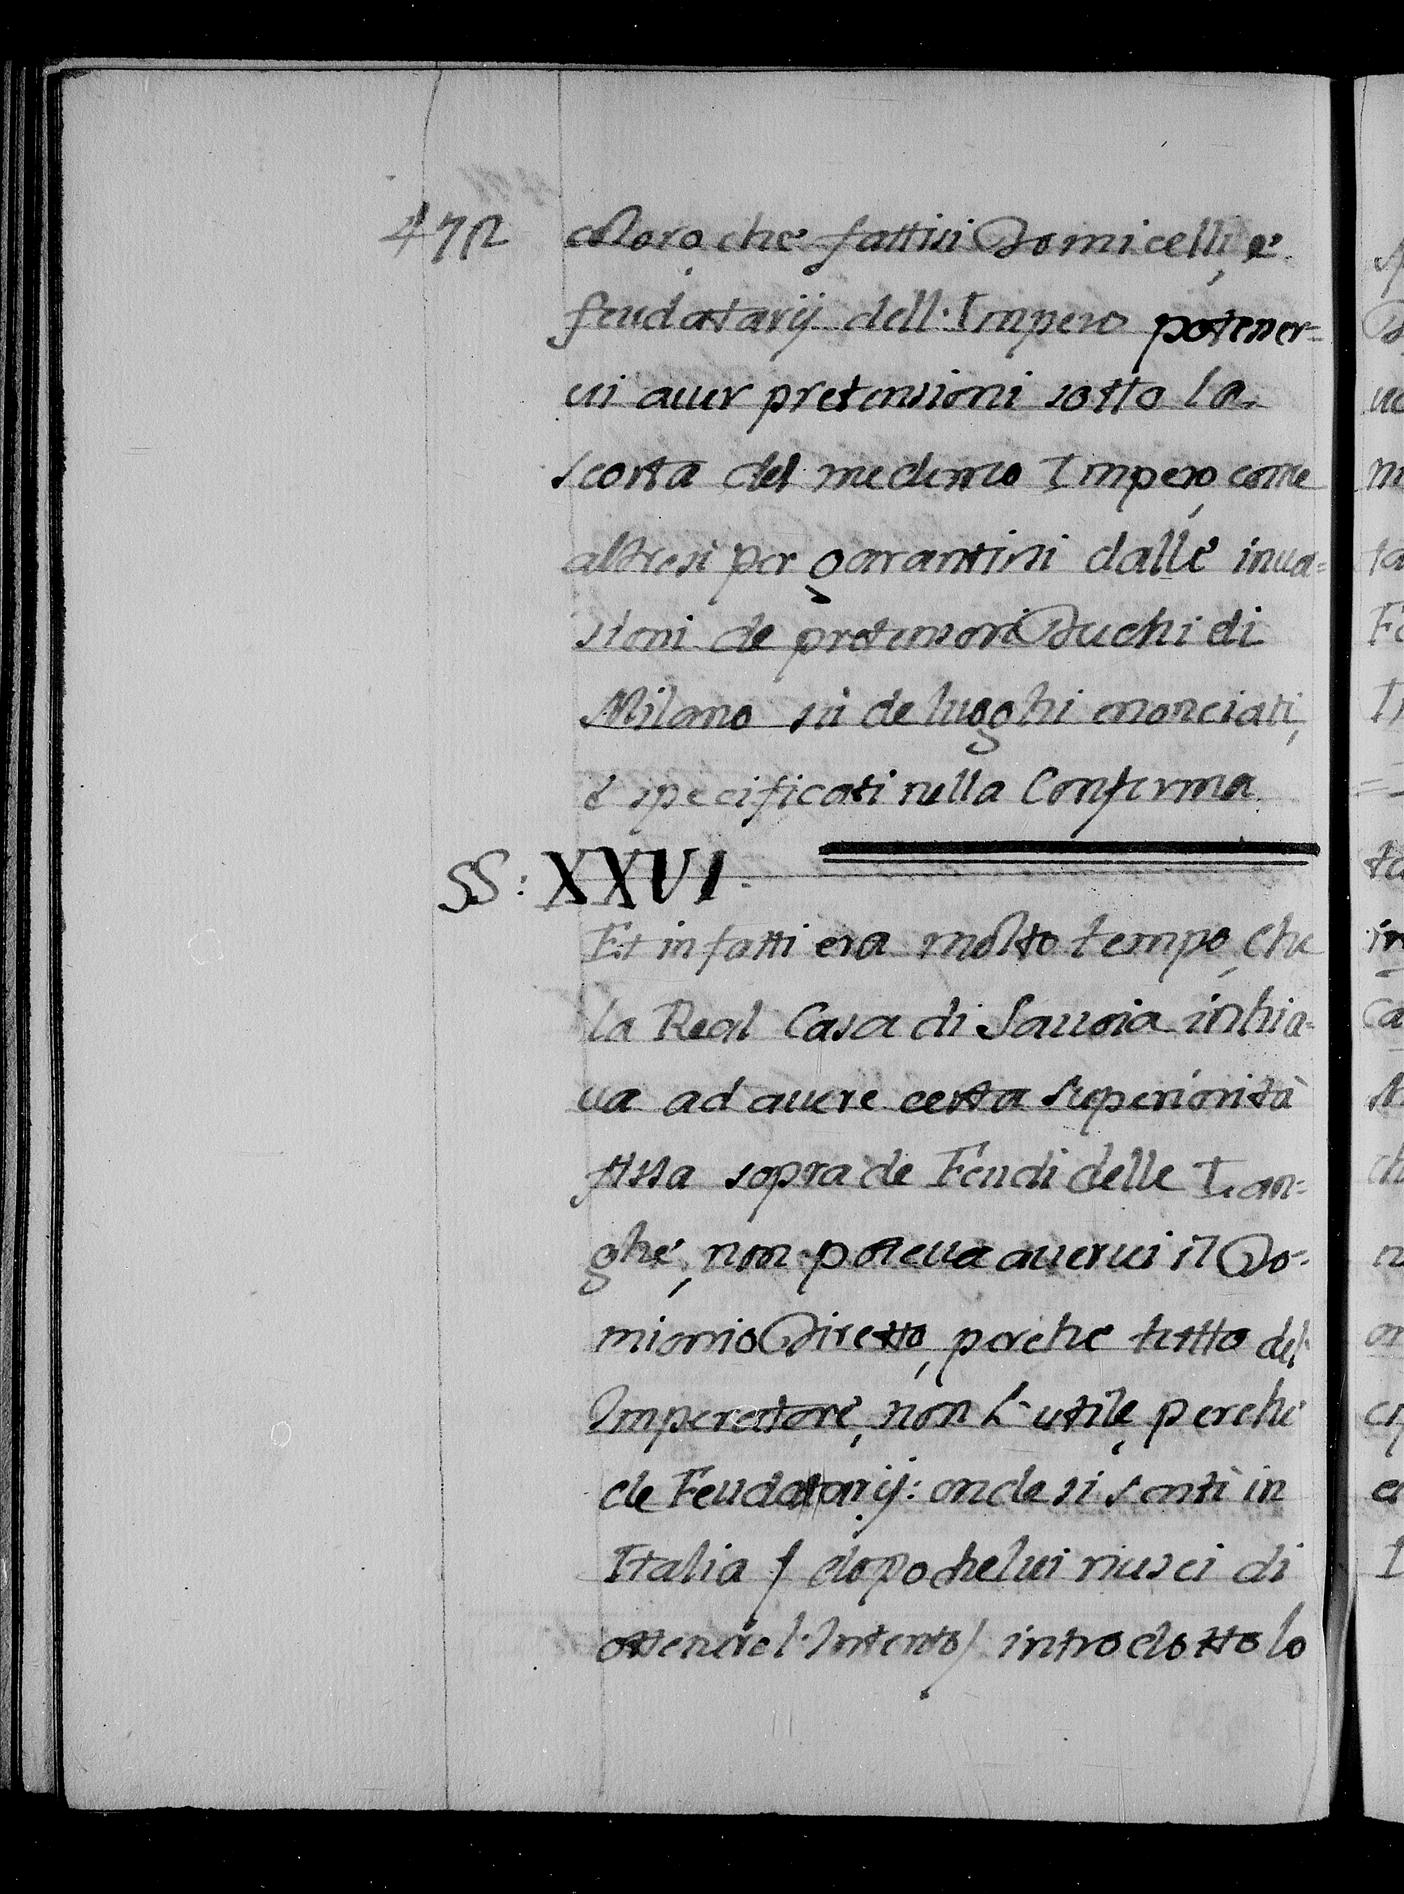 472
coloro che fattisi Domicelli, e
feudatarij dell'Impero potener=
ui auer pretensioni sotto la
scorta del medemo Impero, come
altresi per garantirsi dalle inua=
sioni de pretensori Duchi di
Milano sù de luoghi enonciati,
e specificati nella Conferma
SS: XXVI.
Et in fatti era molto tempo, che
la Real Casa di Sauoia inhia=
ua ad auere certa superiorità
fissa sopra de Feudi delle Lan=
ghe, non poteua auerui il Do=
minio Diretto, perche tutto del
Imperatore, non l'utile, perche
de Feudatarij: onde si sentì in
Italia / dopo che lui riusci di
ottenere l'Intento / introdotto lo